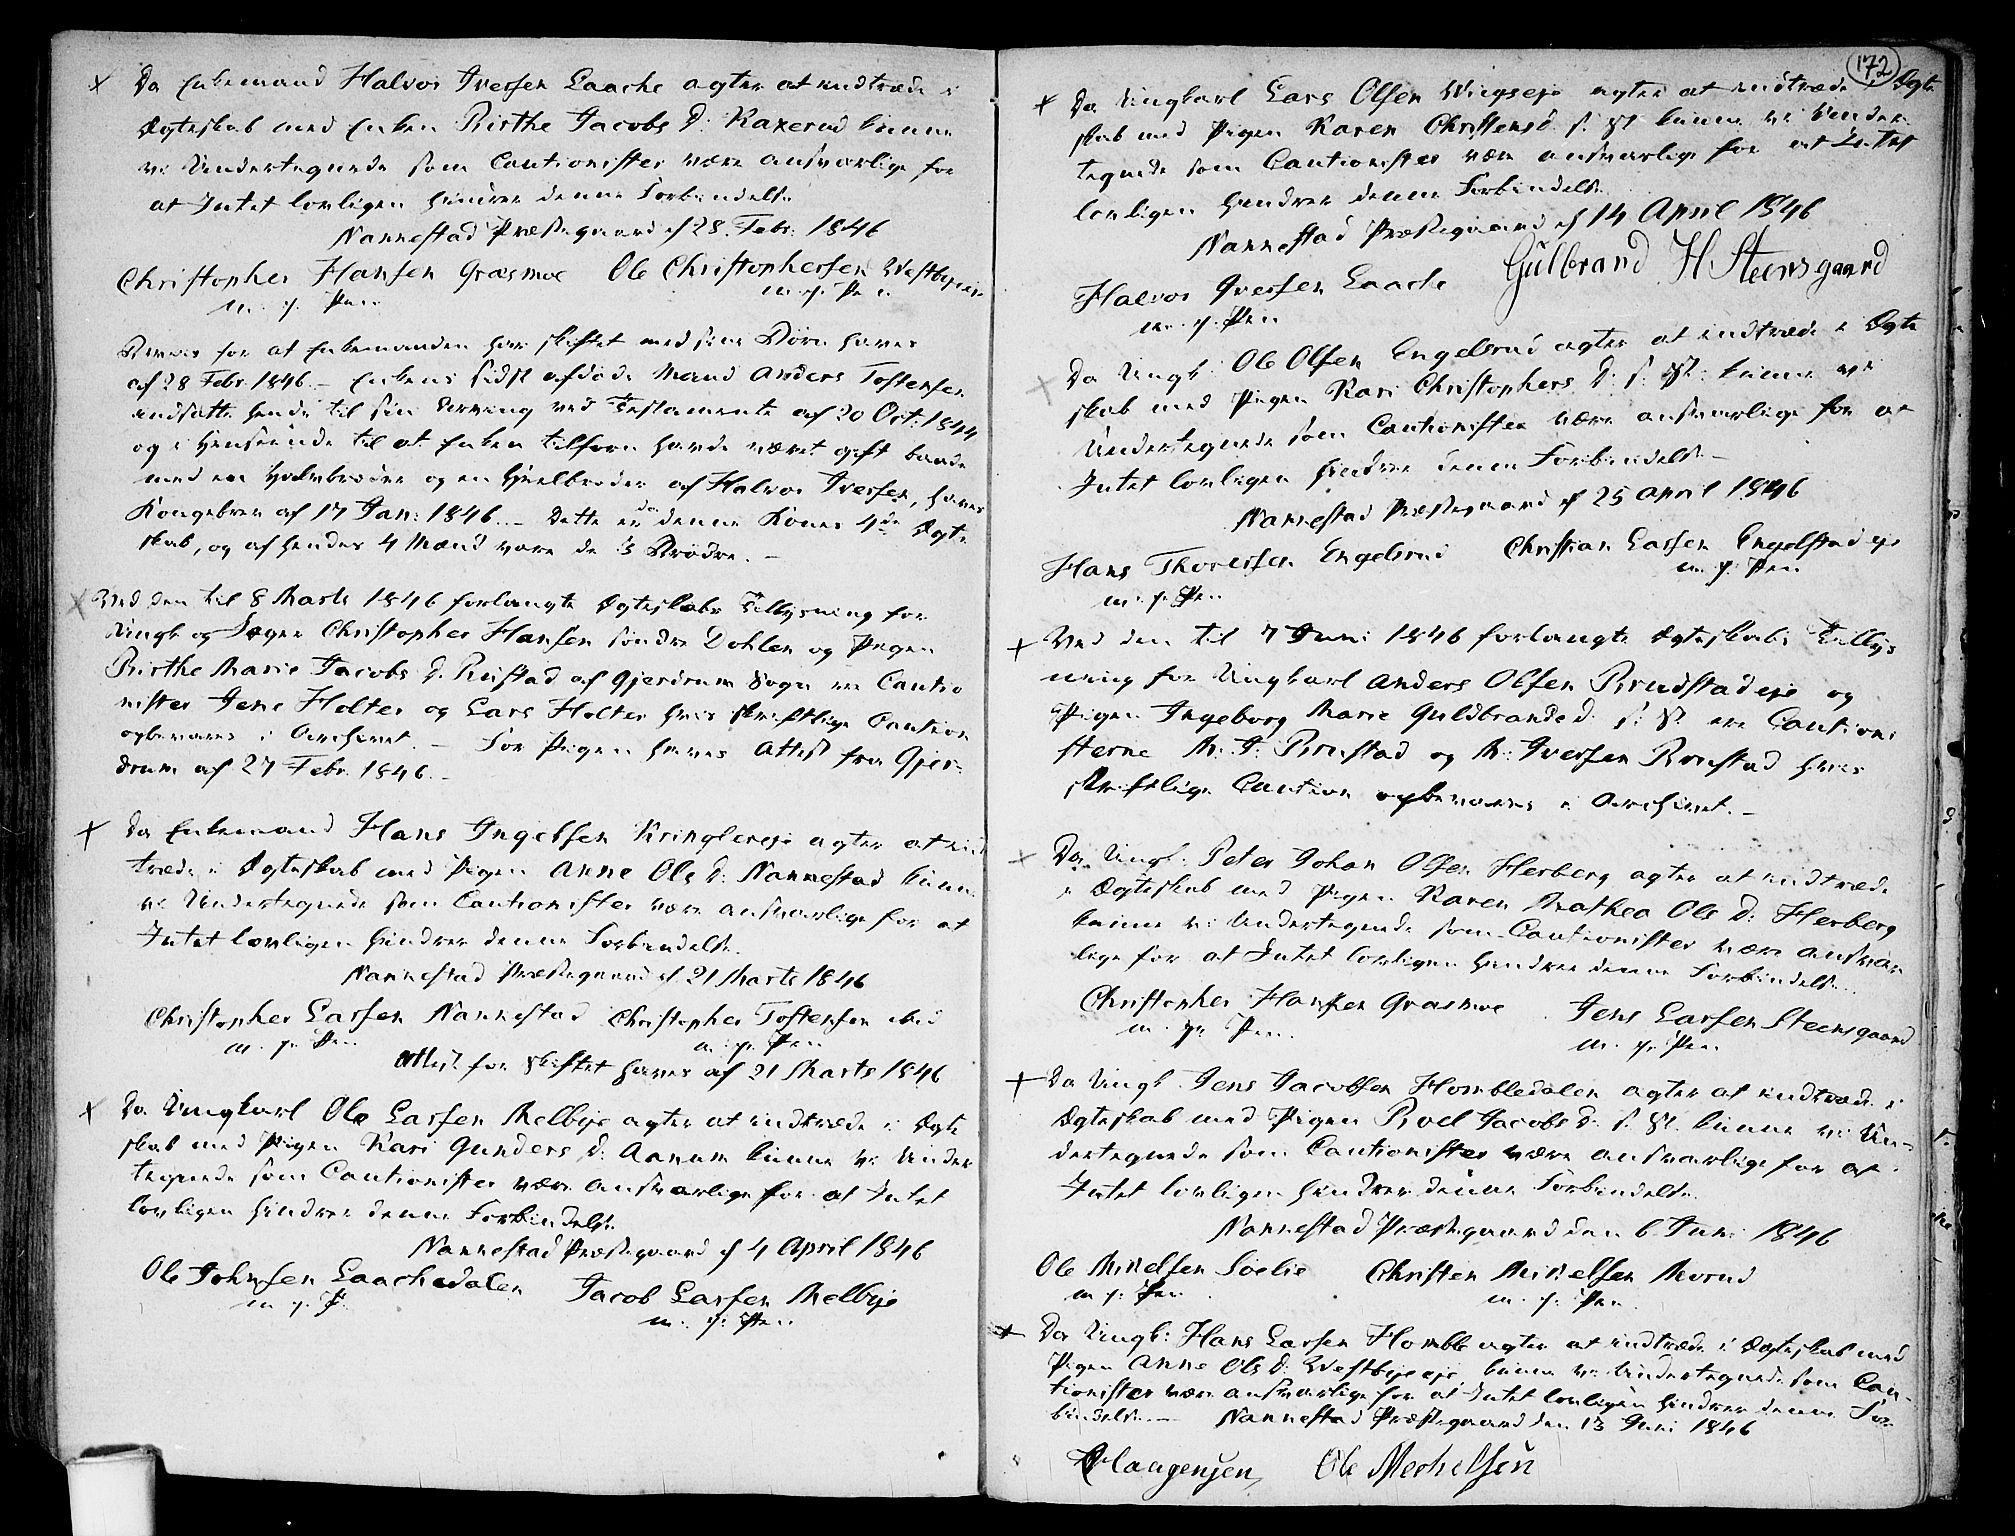 Da Enkemand Halvor Iversen Laache agter at indtræde i
Ægteskab med Enken Birthe Jacobs D. Raxerud kunne
vi Undertegnede som Cautionister være ansvarlige for
at Intet lovligen hindrer denne Forbindelse.
Nannestad Præstegaard d 28. Febr: 1846
Christopher Hansen Græsmoe Ole Christophersen Westbyeie
m. p. Pen m. p. Pen
Beviis for at Enkemanden har skiftet med sine Børn haves
af 28 Febr. 1846. – Enkens sidst afdøde Mand Anders Tostensen
indsatte hende til sin Arving ved Testamente af 20 Oct: 1844
og i Henseende til at Enken tilforn havde været gift baade
med en Halvbroder og en Heelbroder af Halvor Iversen, haves
Kongebrev af 17 Jan: 1846. – Dette er da denne Kones 4de Ægte
skab, og af hendes 4 Mænd vare de 3 Brødre. –
Ved den til 8 Marts 1846 forlangte Ægteskabs Tillysning for
Ungk og Jæger Christopher Hansen søndre Dohlen og Pigen
Birthe Marie Jacobs D. Rustad af Gjerdrum Sogn ere Cautio
nister Jens Holter og Lars Holter hvis skriftlige Caution
opbevares i Archivet. – For Pigen haves Attest fra Gjer-
drum af 27 Febr. 1846. –
Da Enkemand Hans Ingelsen Kringlereie agter at ind
træde i Ægteskab med Pigen Anne Ols D. Nannestad kunne
vi Undertegnede som Cautionister være ansvarlige for at
Intet lovligen hindrer denne Forbindelse.
Nannestad Præstegaard d 21 Marts 1846
Christopher Larsen Nannestad Christopher Tostensen
m. p. Pen m. p. Pen
Attest for Skiftet haves af 21 Marts 1846
Da Ungkarl Ole Larsen Melbye agter at indtræde i Ægte
skab med Pigen Kari Gunders D. Aanum kunne vi Under
tegnede som Cautionister være ansvarlige for at Intet
lovligen hindrer denne Forbindelse.
Nannestad Præstegaard d 4 April 1846
Ole Johnsen Laachedalen Jacob Larsen Melbye
m. p. P. m. p. Pen
172
Da Ungkarl Lars Olsen Wiigseie agter at indtræde i Ægte
skab med Pigen Karen Christens D. s. St. kunne vi Under
tegnede som Cautionister være ansvarlige for at Intet
lovligen hindrer denne Forbindelse.
Nannestad Præstegaard d 14 April 1846
Halvor Iversen Laache Gulbrand H Steensgaard
m. p. Pen
Da Ungk: Ole Olsen Engelsrud agter at indtræde i Ægte
skab med Pigen Kari Christophers D. s. St. kunne vi
Undertegnede som Cautionister være ansvarlige for at
Intet lovligen hindrer denne Forbindelse –
Nannestad Præstegaard d 25 April 1846
Hans Thoresen Engelsrud Christian Larsen Engelstadeie
m. p. Pen m. p. Pen
Ved den til 7 Juni 1846 forlangte Ægteskabs Tillys
ning for Ungkarl Anders Olsen Brudstadeie og
Pigen Ingeborg Marie Guldbrands D. s. St. ere Cautioni
sterne M. J. Brustad og M. Iversen Brustad hvis
skriftlige Caution opbevares i Archivet. –
Da Ungk: Peter Johan Olsen Herberg agter at indtræde
i Ægteskab med Pigen Karen Mathea Ols D. Herberg
kunne vi Undertegnede som Cautionister være ansvar
lige for at Intet lovligen hindrer denne Forbindelse.
Christopher Hansen Græsmoe Jens Larsen Steensgaard
m. p. Pen. m. p. Pen.
Da Ungk. Jens Jacobsen Hombledalen agter at indtræde i
Ægteskab med Pigen Roel Jacobs D. s. St. kunne vi Un-
dertegnede som Cautionister være ansvarlige for at
Intet lovligen hindrer denne Forbindelse.
Nannestad Præstegaard den 6 Juni 1846
Ole Mikelsen Soelie Christen Mikelsen Morud
m. p. Pen. m. p. Pen.
Da Ungk: Hans Larsen Homble agter at indtræde i Ægteskab med
Pigen Anne Ols D. Westbyeeie, kunne vi Undertegnede som Cau-
tionister være ansvarlige for at Intet lovligen hindrer denne For
bindelse. – Nannestad Præstegaard den 13 Juni 1846
Haagensen Ole Mechelsen